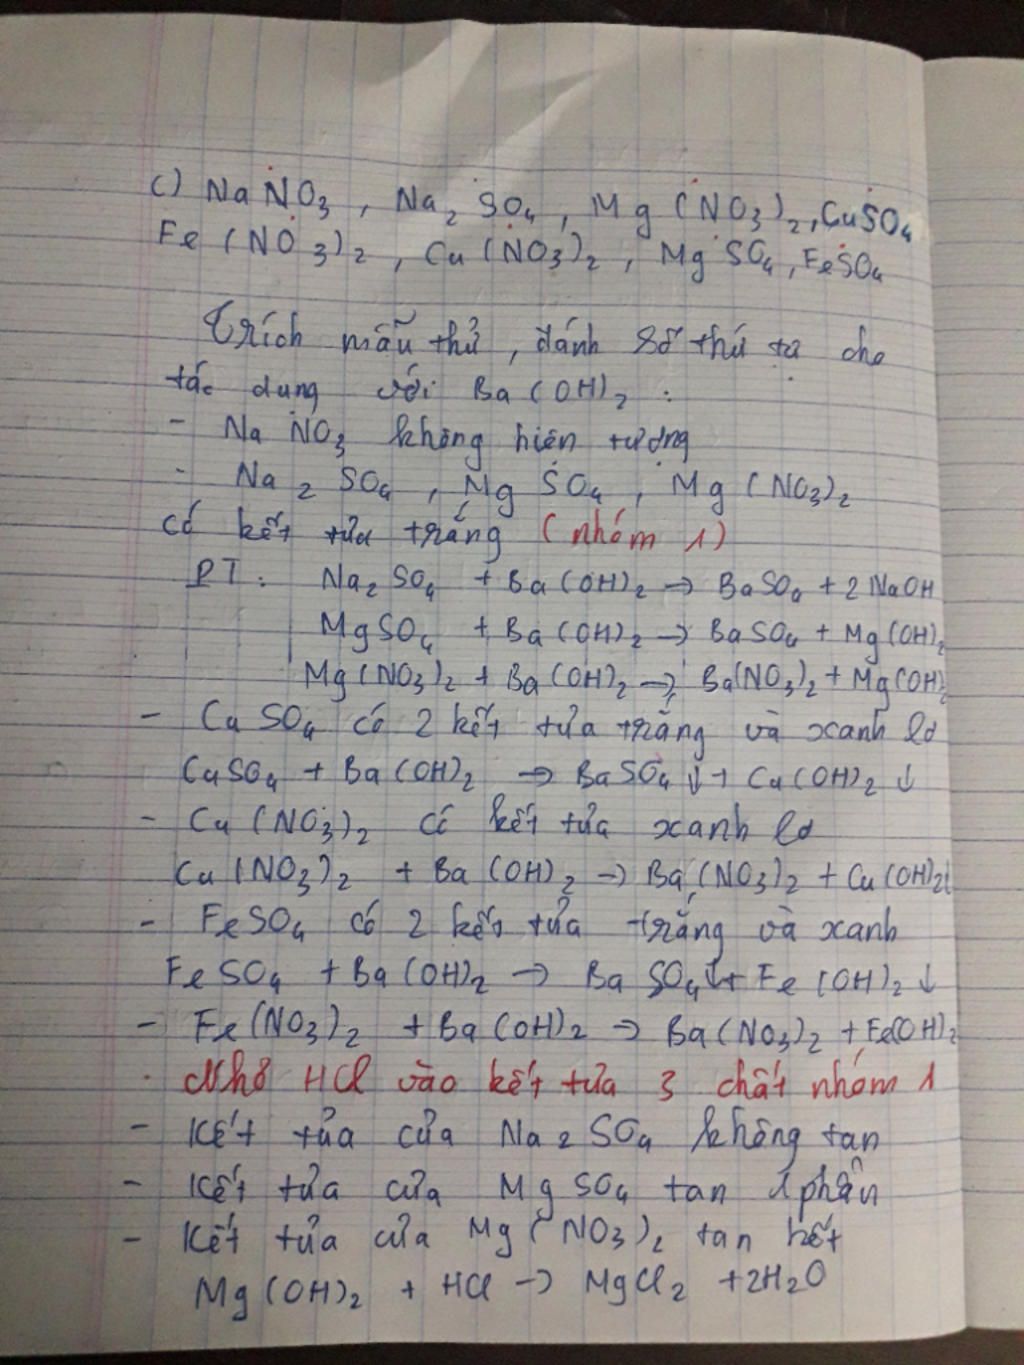 c) NaNO3, Na2SO4, Mg(NO3)2, CuSO4
Fe(NO3)2, Cu(NO3)2, MgSO4, FeSO4
Trích mẫu thử, đánh số thứ tự cho
tác dụng với Ba(OH)2 :
- NaNO3 không hiện tượng
- Na2SO4, MgSO4, Mg(NO3)2
có kết tủa trắng (nhóm 1)
PT: Na2SO4 + Ba(OH)2 → BaSO4 + 2NaOH
MgSO4 + Ba(OH)2 → BaSO4 + Mg(OH)2
Mg(NO3)2 + Ba(OH)2 → Ba(NO3)2 + Mg(OH)2
- CuSO4 có 2 kết tủa trắng và xanh lơ
CuSO4 + Ba(OH)2 → BaSO4↓ + Cu(OH)2↓
- Cu(NO3)2 có kết tủa xanh lơ
Cu(NO3)2 + Ba(OH)2 → Ba(NO3)2 + Cu(OH)2↓
- FeSO4 có 2 kết tủa trắng và xanh
FeSO4 + Ba(OH)2 → BaSO4↓ + Fe(OH)2↓
- Fe(NO3)2 + Ba(OH)2 → Ba(NO3)2 + Fe(OH)2
. Nhỏ HCl vào kết tủa 3 chất nhóm 1
- Kết tủa của Na2SO4 không tan
- Kết tủa của MgSO4 tan 1 phần
- Kết tủa của Mg(NO3)2 tan hết
Mg(OH)2 + HCl → MgCl2 + 2H2O